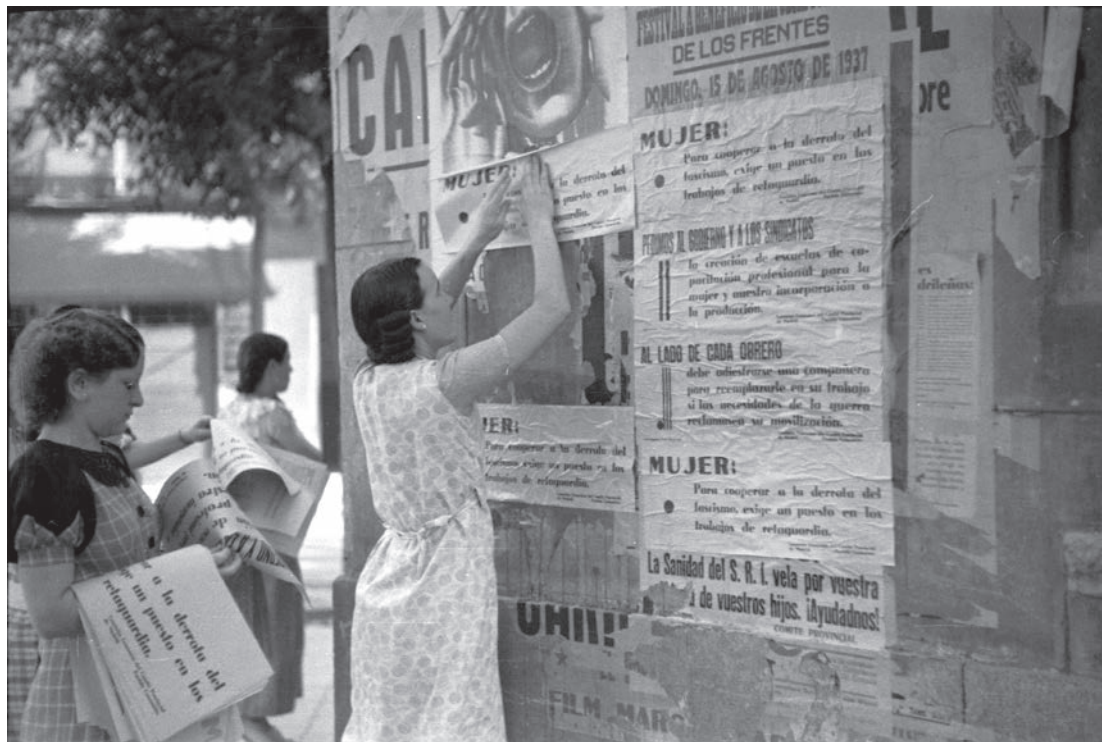 CA
MUJER:
a la derrota del
un puesto en los
retaguardia.
FESTIVAL A BENEFICIO DE
DE LOS FRENTES
DOMINGO, 15 DE AGOSTO DE 1937
MUJER:
Para cooperar a la derrota del
fascismo, exige un puesto en los
trabajos de retaguardia.
PEDIMOS AL GOBIERNO Y A LOS SINDICATOS
la creación de escuelas de ca-
pacitación profesional para la
mujer y nuestra incorporación a
la producción.
AL LADO DE CADA OBRERO
debe adiestrarse una compañera
para reemplazarle en su trabajo
si las necesidades de la guerra
reclamasen su movilización.
MUJER:
Para cooperar a la derrota del
fascismo, exige un puesto en los
trabajos de retaguardia.
La Sanidad del S. R. I. vela por vuestra
de vuestros hijos. ¡Ayudadnos!
COMITE PROVINCIAL
JER:
Para cooperar a la derrota del
fascismo, exige un puesto en los
trabajos de retaguardia.
FILM MAR
bre
es
drileñas:
a
a la derrota del
ge un puesto en los
retaguardia.